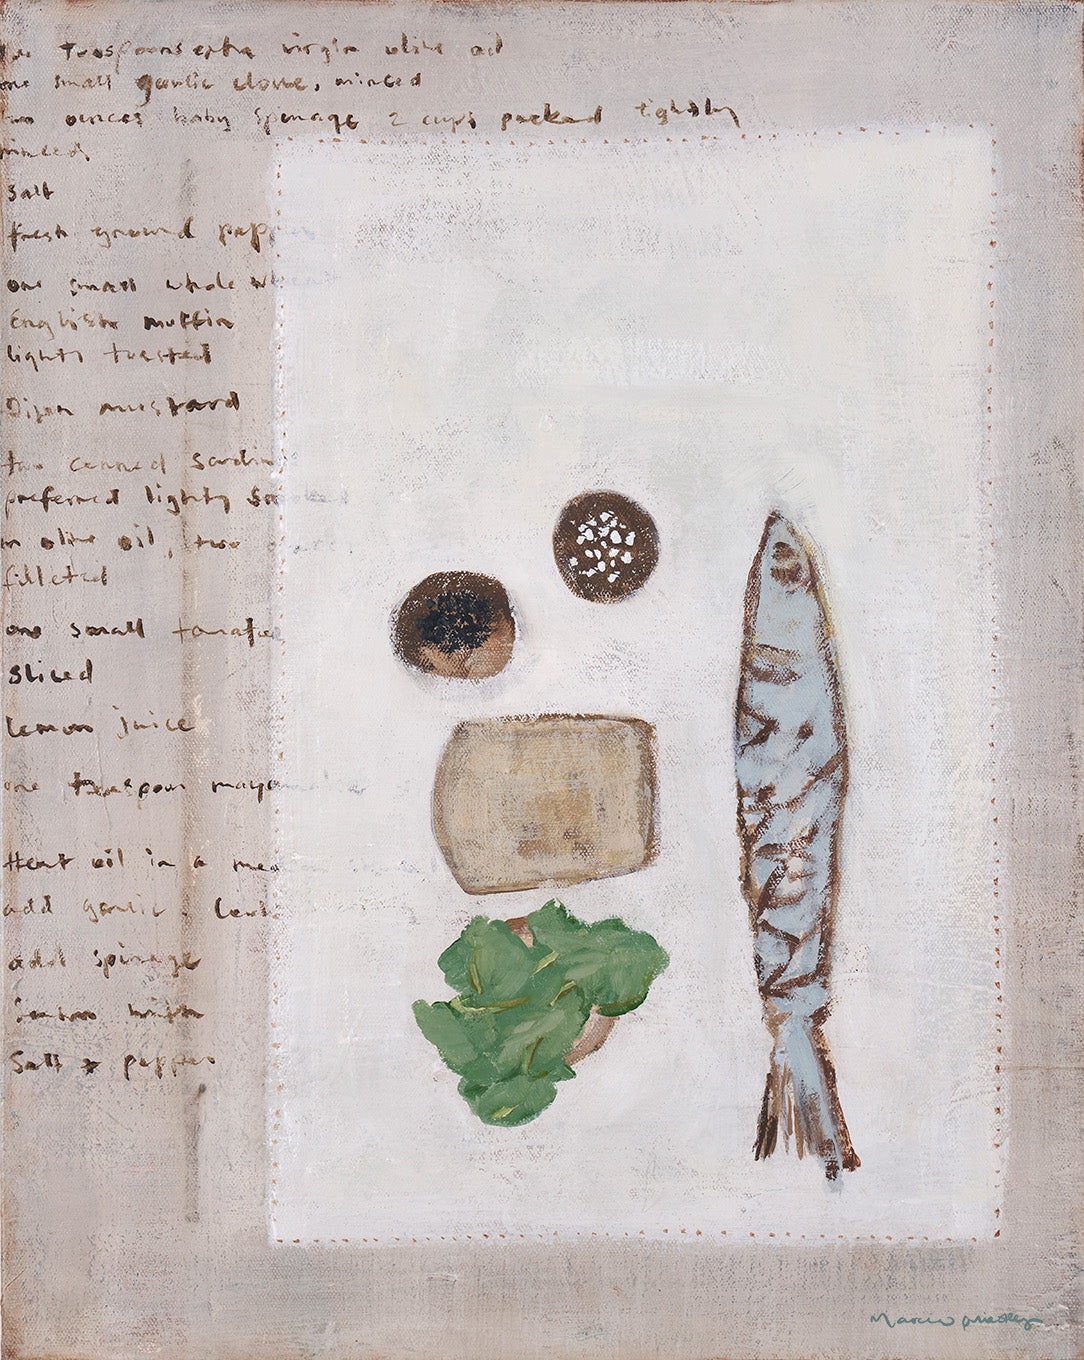 teaspoons extra virgin olive oil
one small garlic clove, minced
two ounces baby spinage 2 cups packed tightly
minced
Salt
fresh ground pepper
one small whole wheat
English muffin
lightly toasted
Dijon mustard
two canned sardin
preferred lightly smoked
in olive oil, two
filleted
one small tomatoe
sliced
lemon juice
one teaspoon mayonnaise
Heat oil in a
add garlic
add spinage
Season with
Salt + pepper